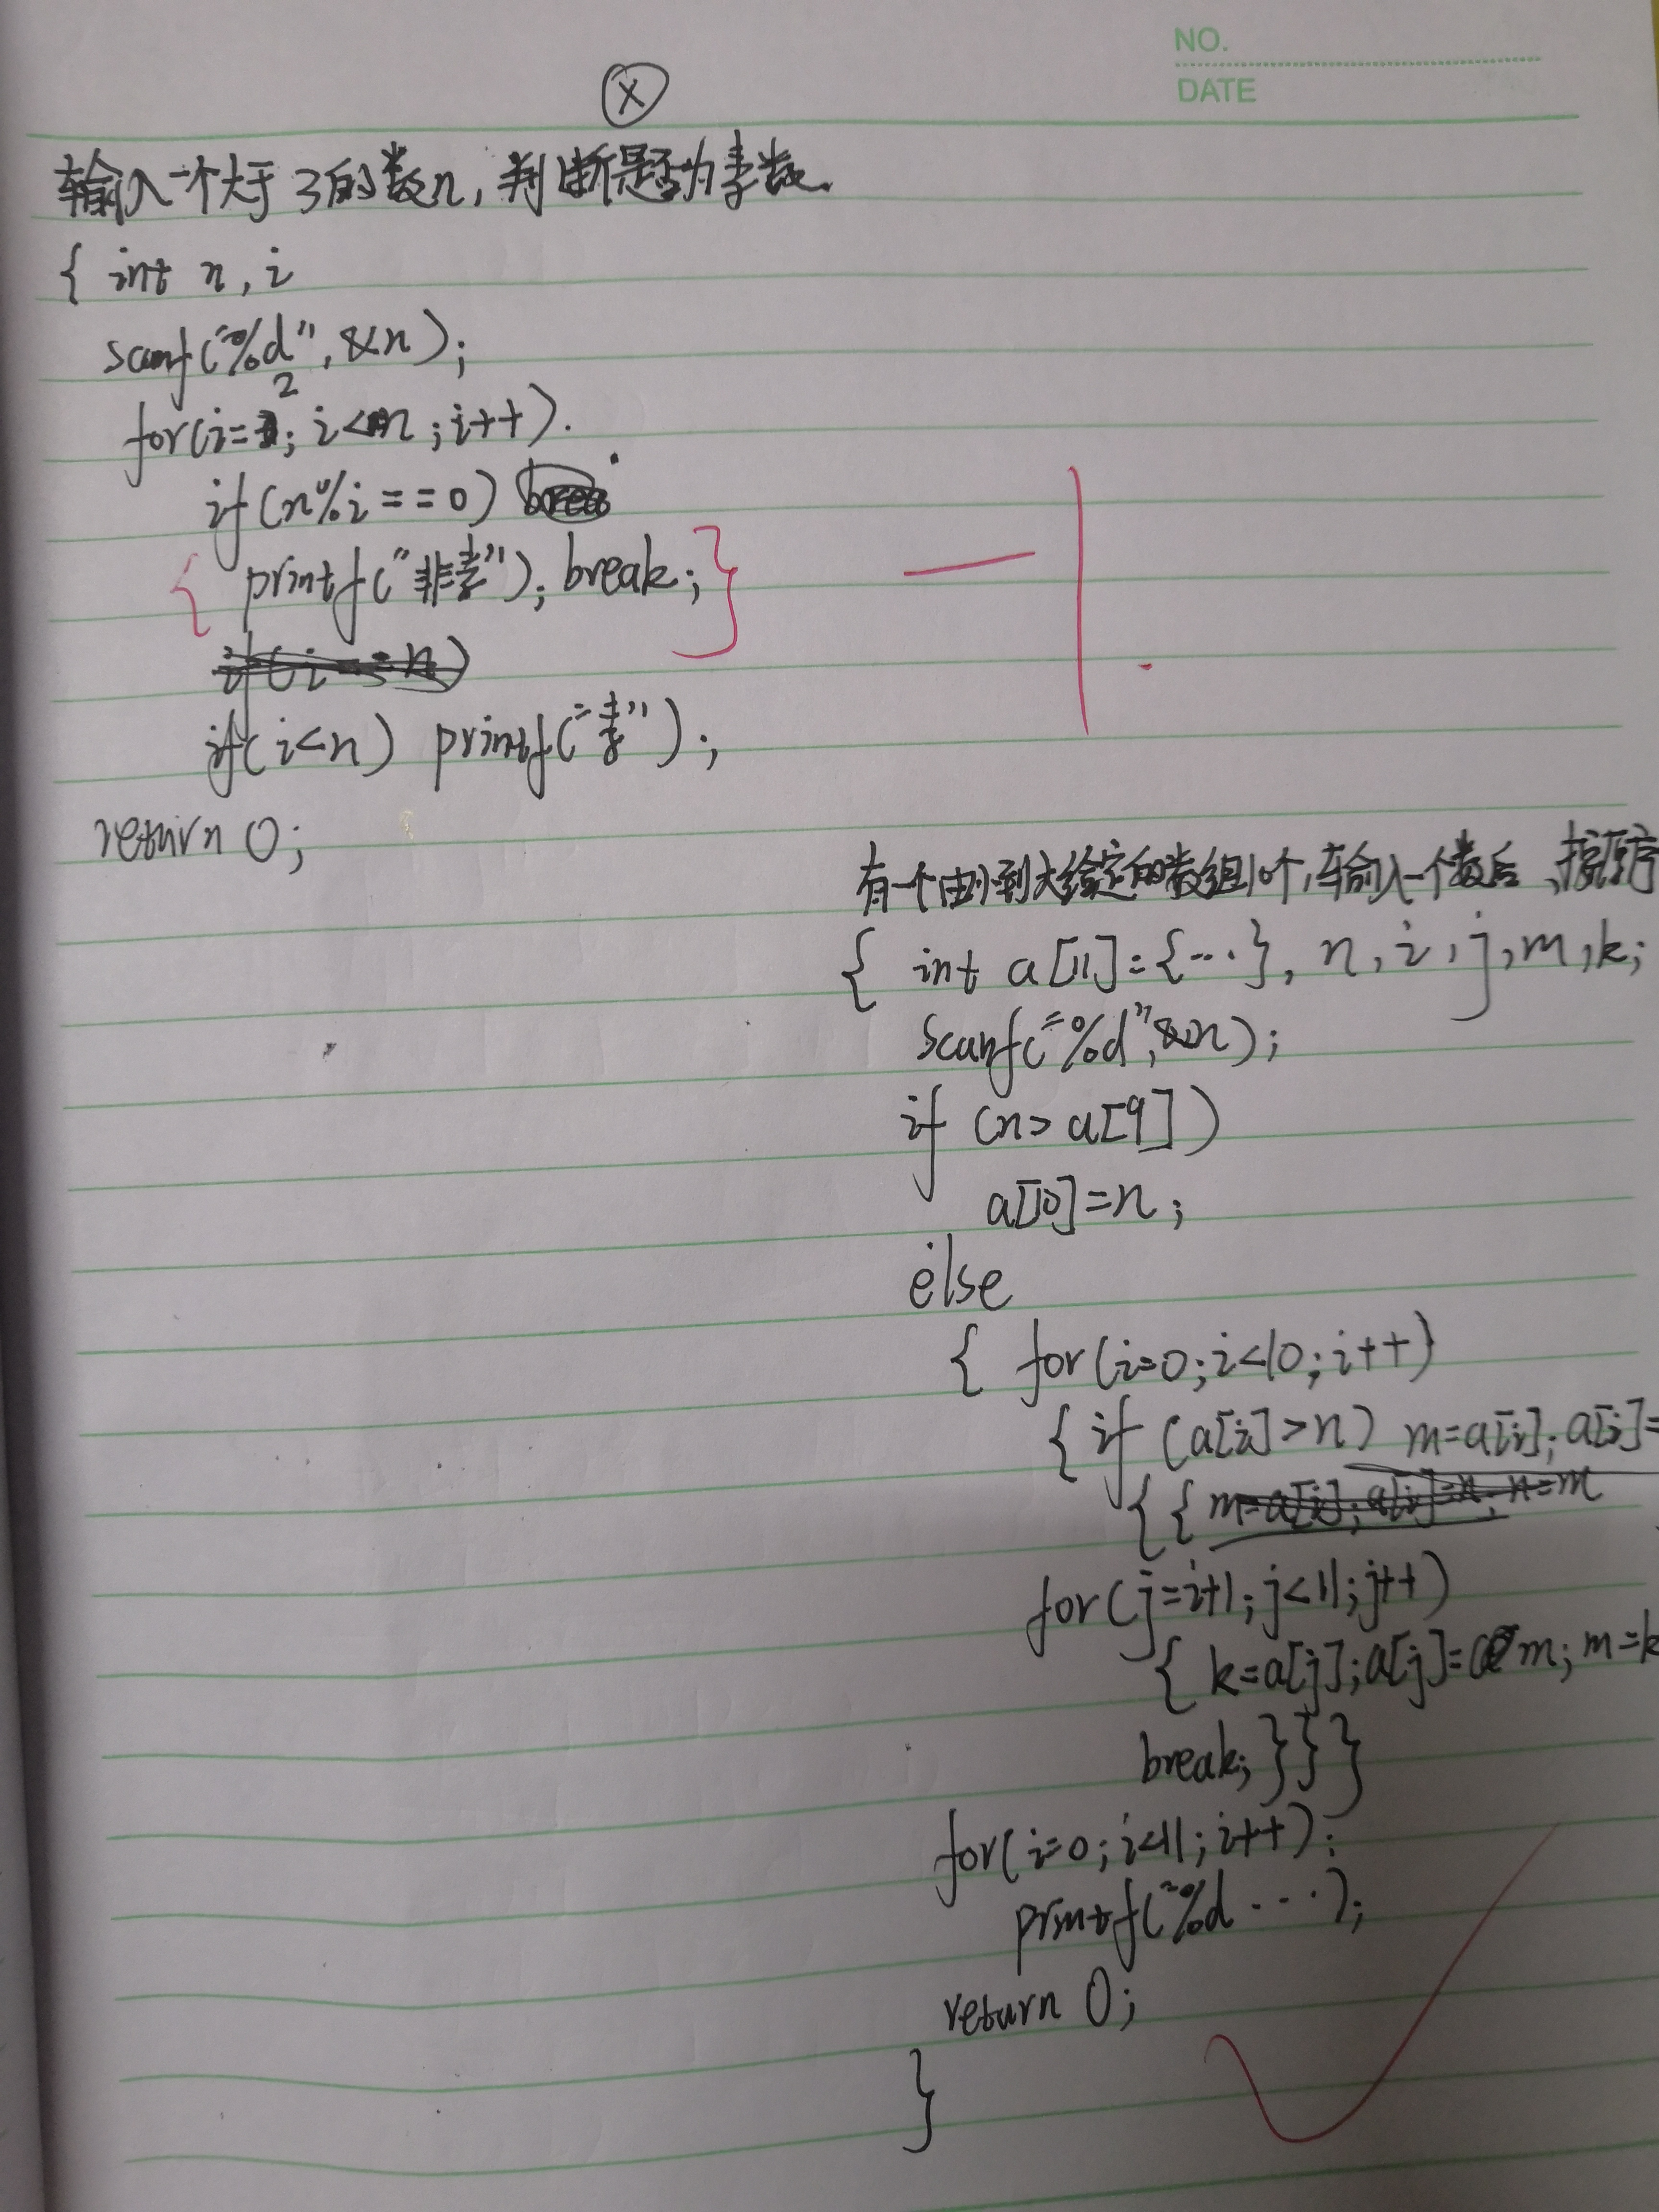 NO.
DATE
X
输入一个大于3的数n,判断是否为素数.
{ int n, i
scanf("%d", &n);
2
for(i= ; i<n ; i++).
if(n%i==0)
{ printf("非素"); break; }
— 1.
if(i==n)
if(i<n) printf("素");
return 0;
有一个由小到大给定的数组10个,输入一个数后,按原序
{ int a[11]={...}, n, i, j, m, k;
scanf("%d", &n);
if (n> a[9])
a[10]=n;
else
{ for(i=0; i<10; i++)
{ if (a[i]>n) m=a[i]; a[i]=
{ { m=a[i]; a[i]=n; n=m
for(j=i+1; j<11; j++)
{ k=a[j]; a[j]= m; m=k
break; } } }
for(i=0; i<11; i++).
printf("%d ...);
return 0;
}